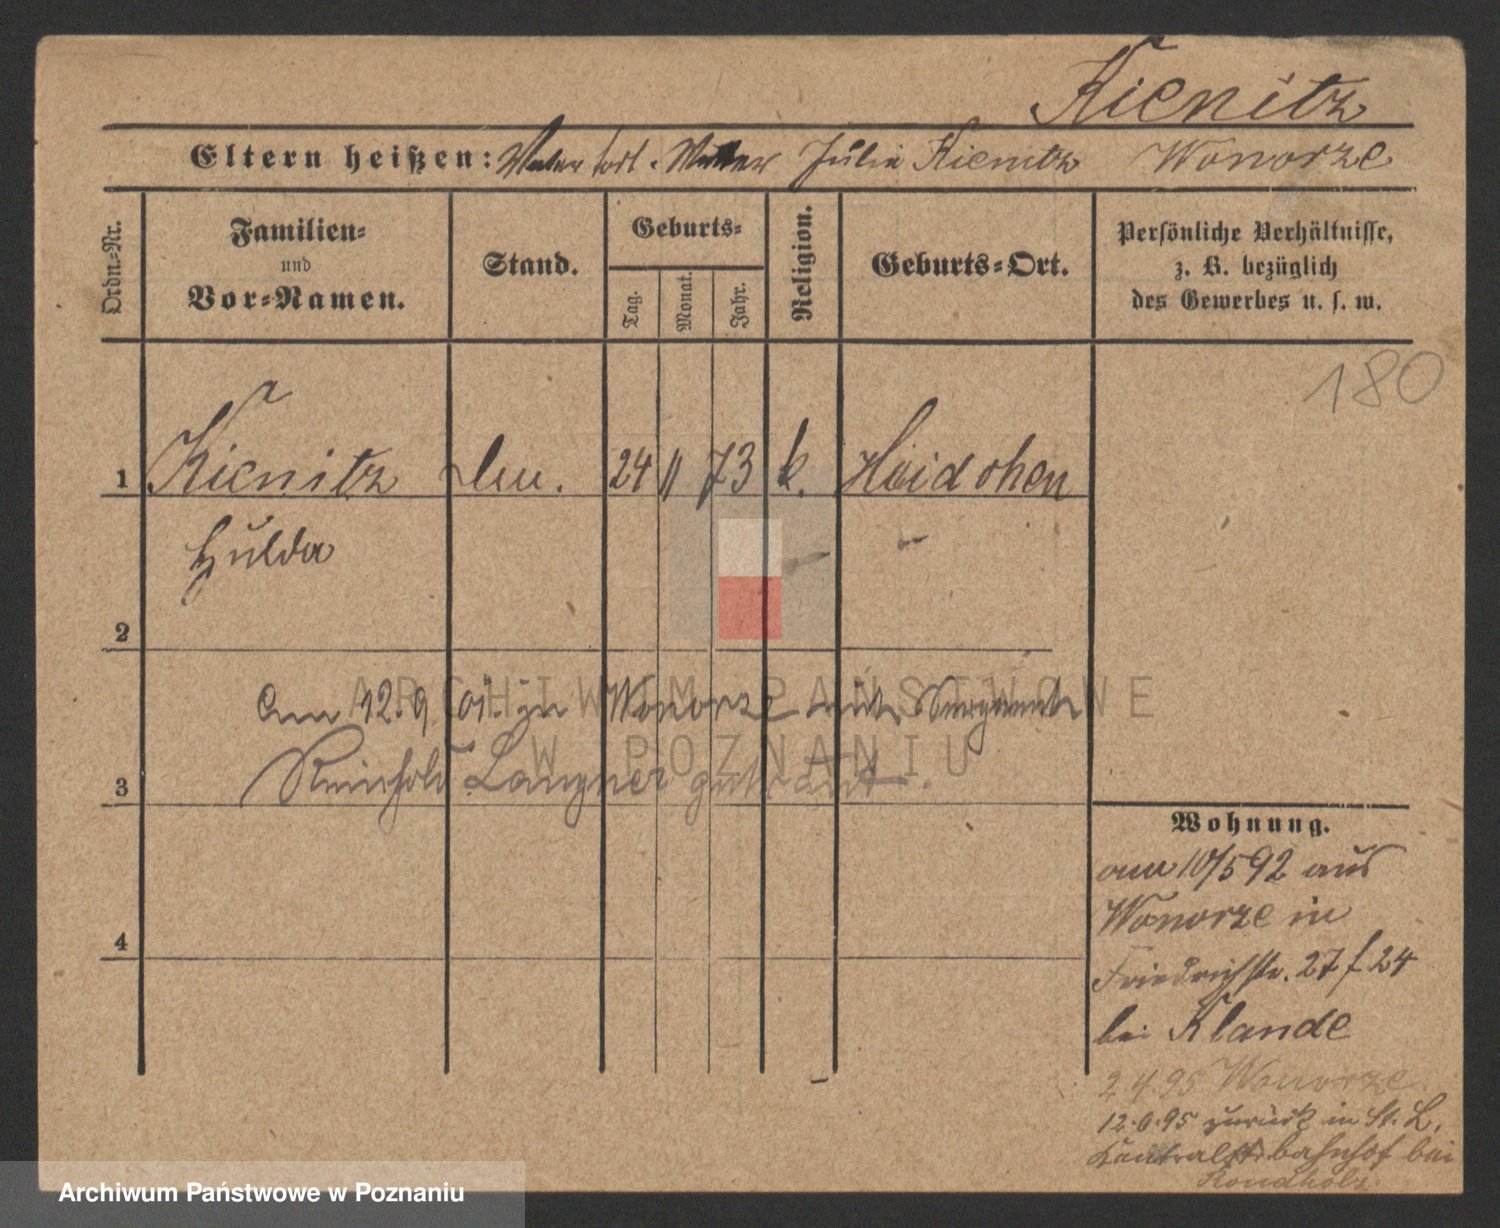 Kienitz
Eltern heißen: Vater tot. Mutter Julie Kienitz Wonorze
Ordn.-Nr.
Familien-
und
Vor-Namen.
Stand.
Geburts-
Tag. Monat. Jahr.
Religion.
Geburts-Ort.
Persönliche Verhältnisse,
z. B. bezüglich
des Gewerbes u. s. w.
180
1 Kienitz 24 11 73 k.
Hulda
2
Am 12.9 01. in Wonorze mit
3 Reinhold Langner getraut.
4
Wohnung.
am 10/5 92 aus
Wonorze in
Friedrichstr. 27 f 24
bei Klande
2 4. 95 Wonorze
12.6.95 zurück in St. L.
bahnhof bei
ARCHIWUM PAŃSTWOWE
W POZNANIU
Archiwum Państwowe w Poznaniu